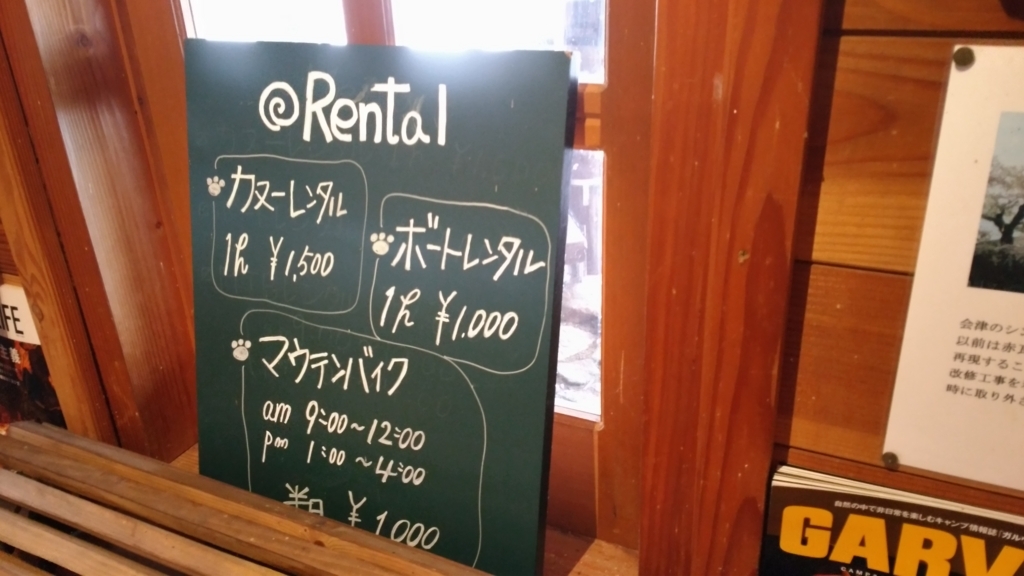 @Rental
カヌーレンタル
1h ¥1,500
ボートレンタル
1h ¥1.000
マウテンバイク
am 9:00~12:00
pm 1:00~4:00
¥1000
IFE
会津のシ
以前は赤
再現するこ
改修工事を
時に取り外さ
自然の中で非日常を楽しむキャンプ情報誌
GARV